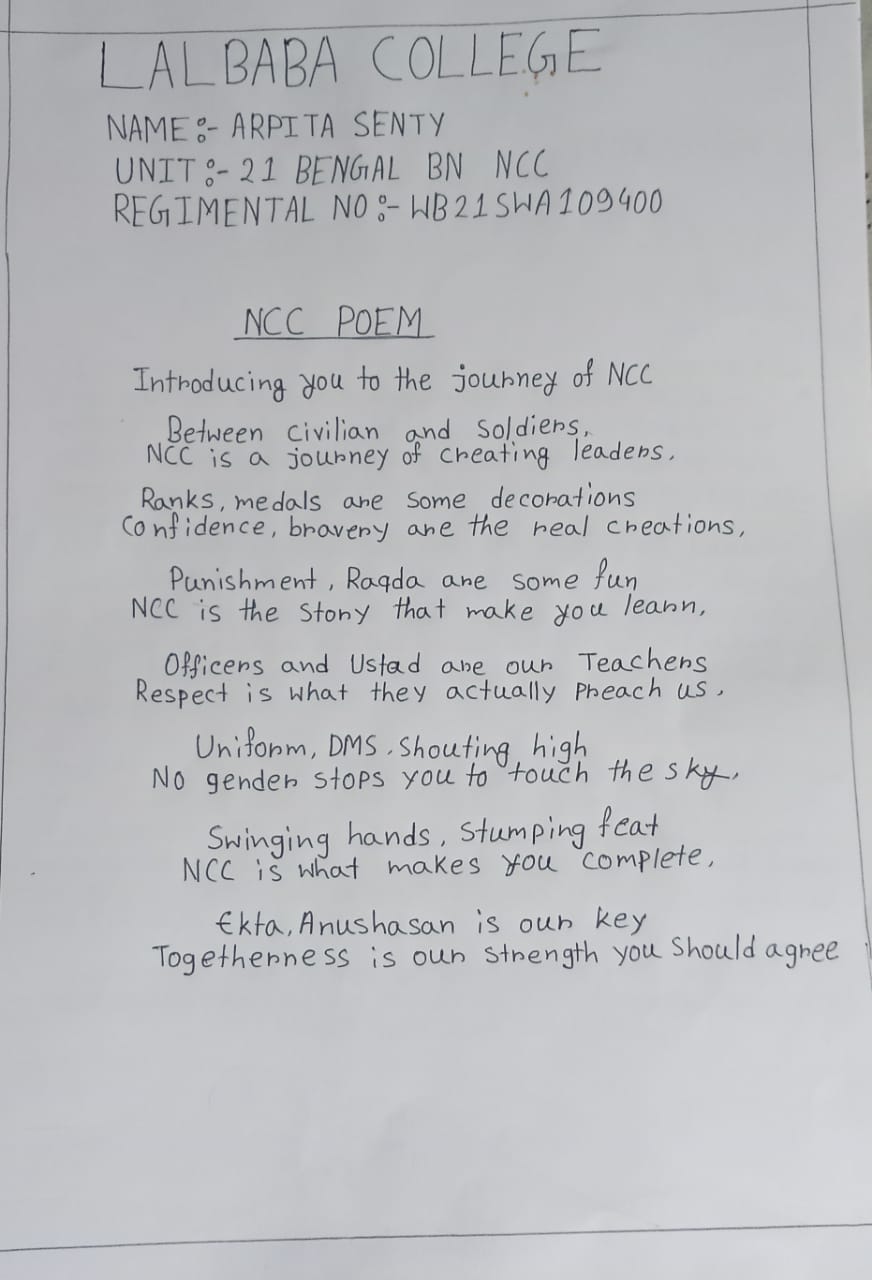 LALBABA COLLEGE
NAME :- ARPITA SENTY
UNIT :- 21 BENGAL BN NCC
REGIMENTAL NO :- WB21SWA109400
NCC POEM
Introducing you to the journey of NCC
Between civilian and soldiers,
NCC is a journey of creating leaders.
Ranks, medals are some decorations
Confidence, bravery are the real creations,
Punishment, Ragda are some fun
NCC is the story that make you learn,
Officers and Ustad are our Teachers
Respect is what they actually Preach us,
Uniform, DMS, shouting high
No gender stops you to touch the sky,
Swinging hands, stumping feat
NCC is what makes you complete,
Ekta, Anushasan is our key
Togetherness is our strength you should agree